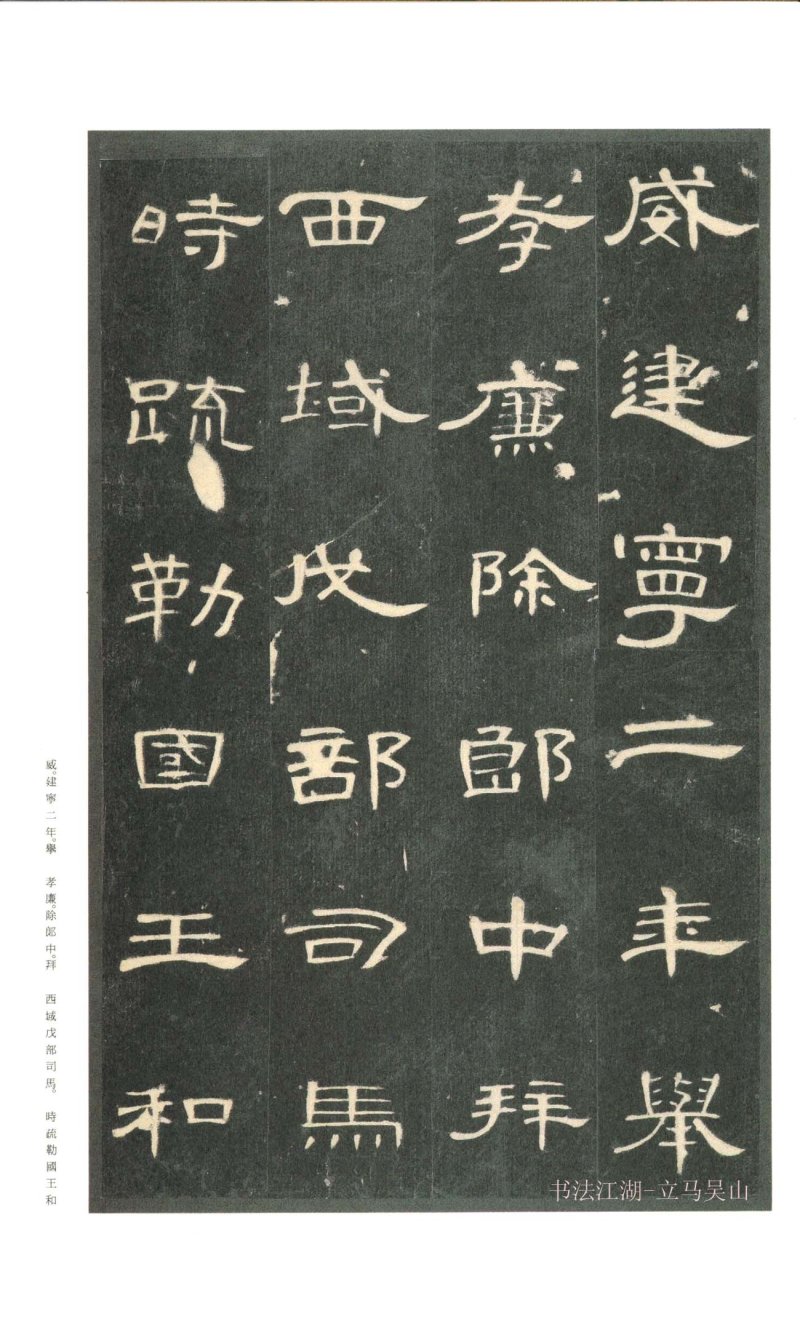 威建寧二年舉
孝廉除郎中拜
西域戊部司馬
時疏勒國王和
威。建寧二年。舉 孝廉。除郎中。拜 西域戊部司馬。 時疏勒國王和
书法江湖-立马吴山